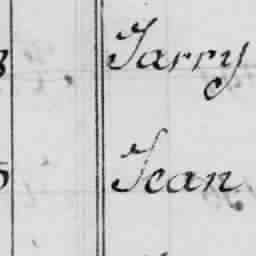 Jarry
Jean